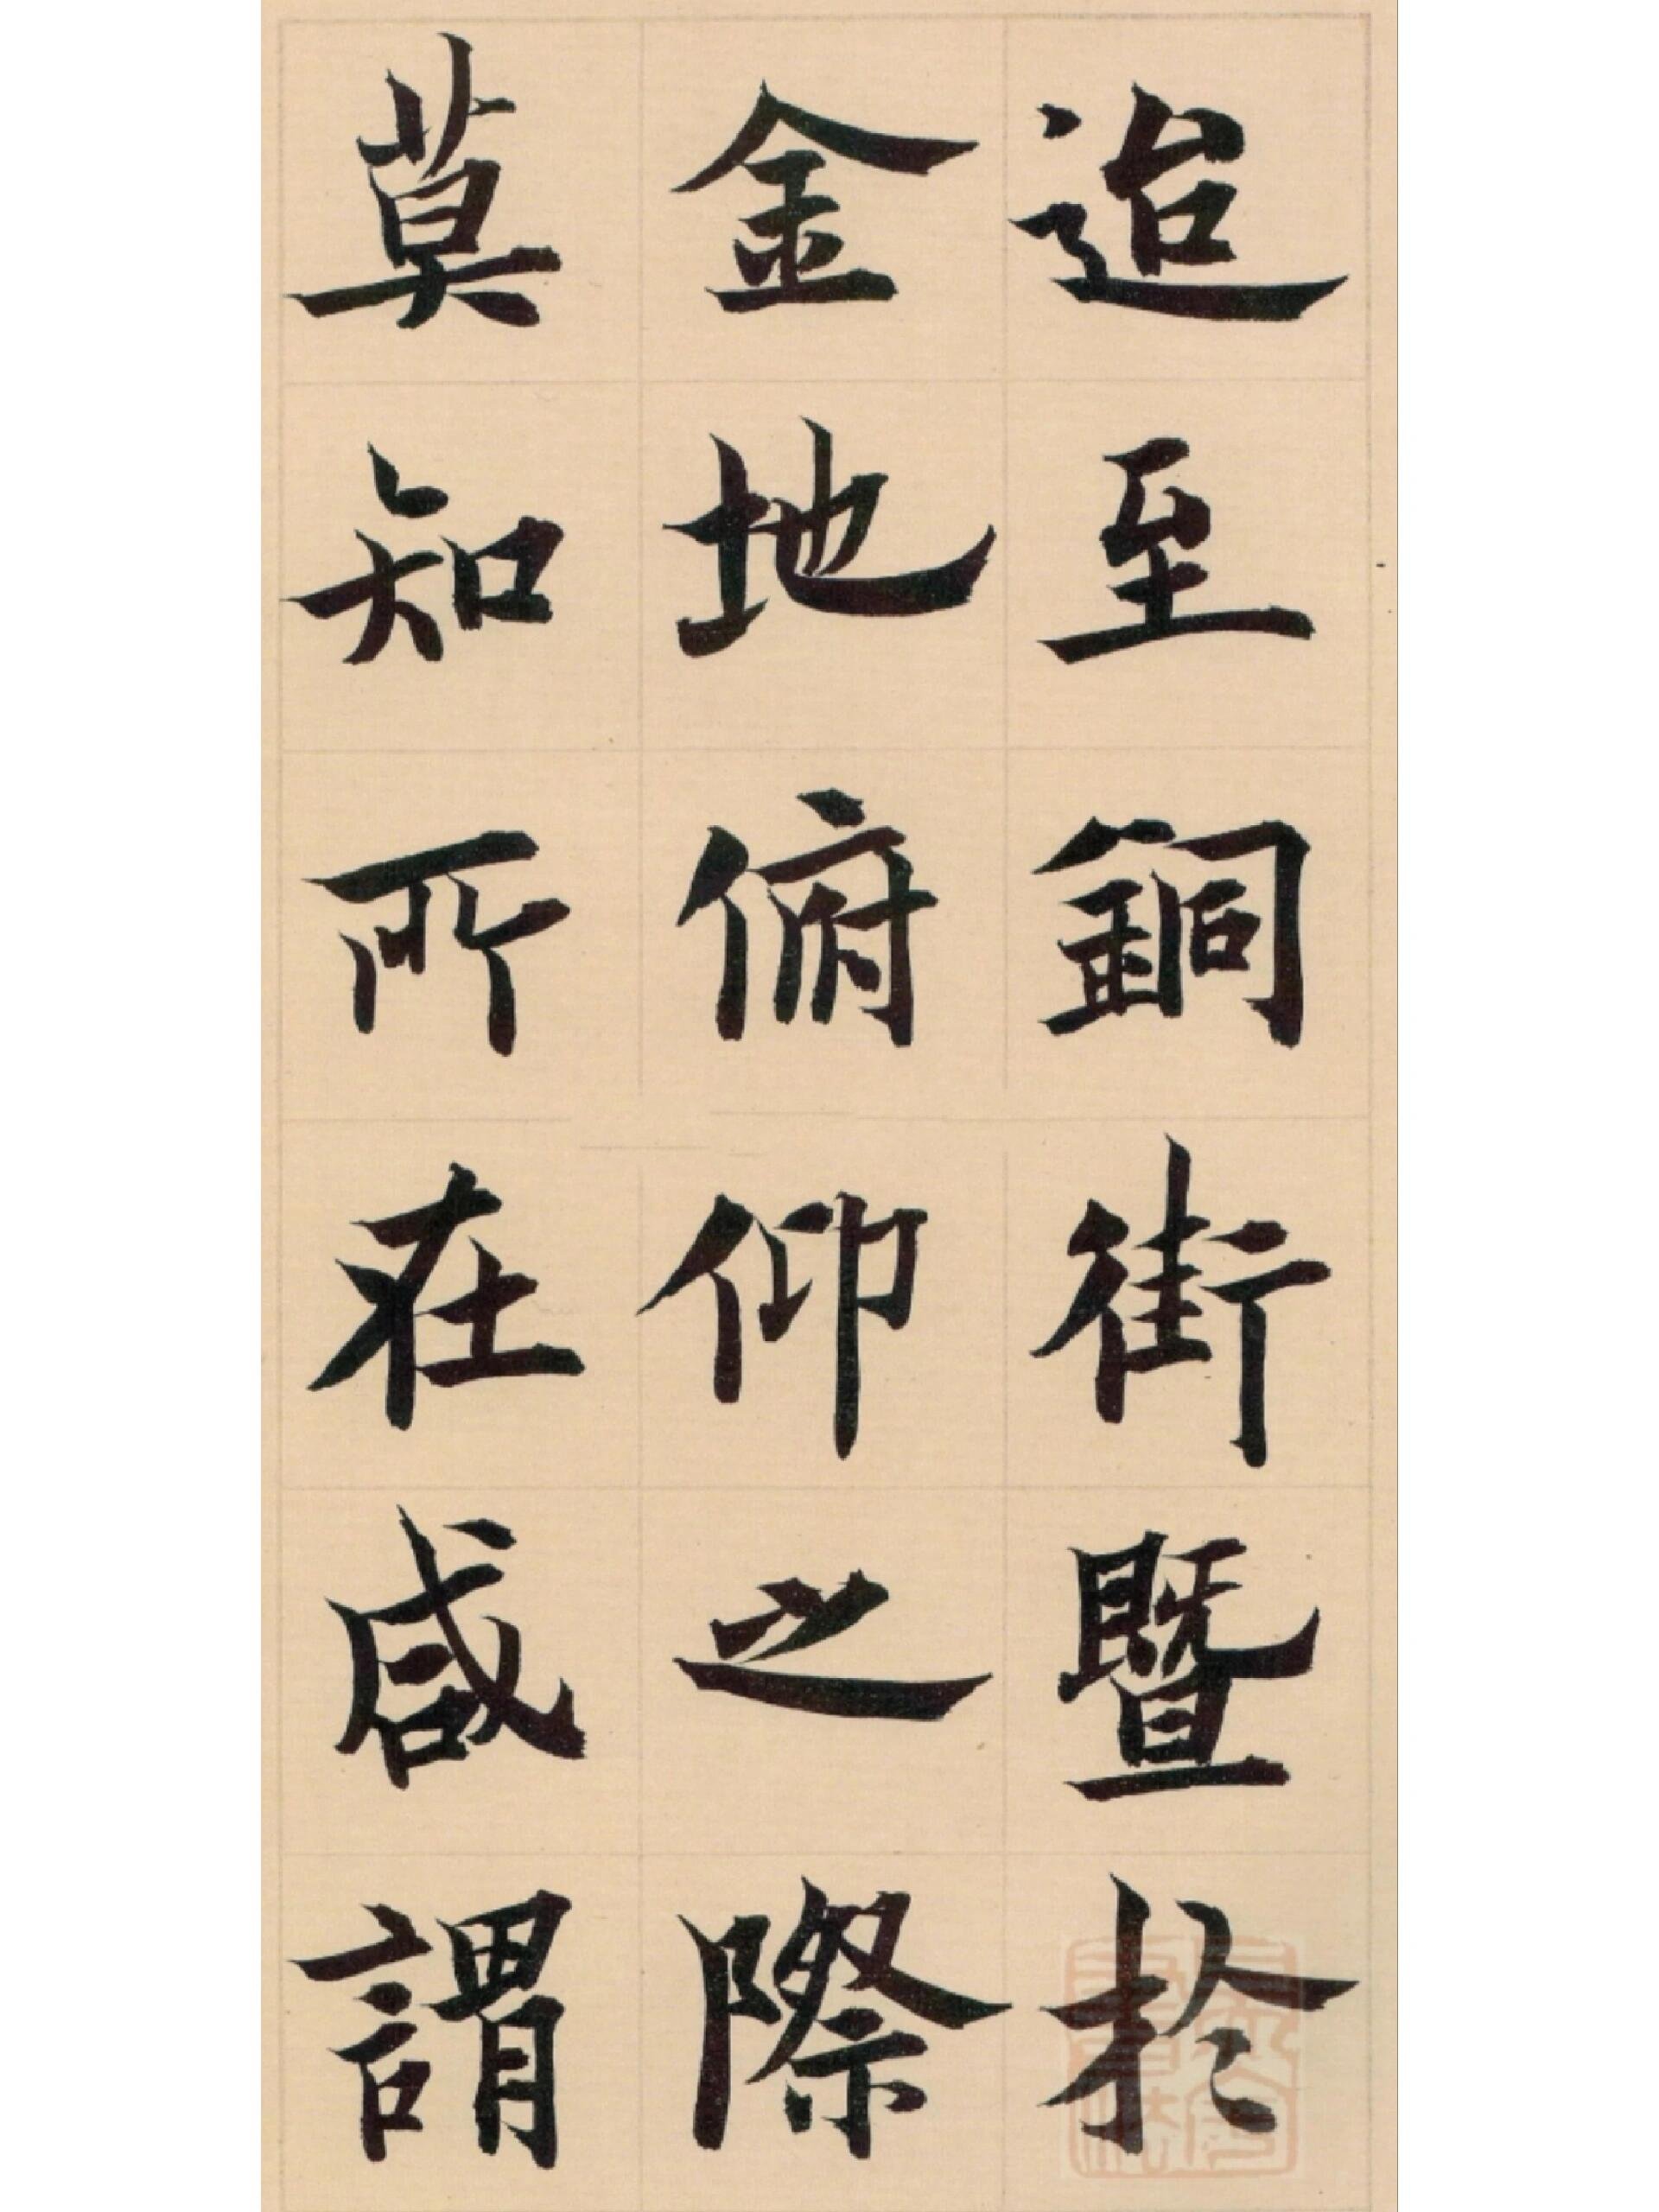 迨至銅街暨於
金地俯仰之際
莫知所在咸謂